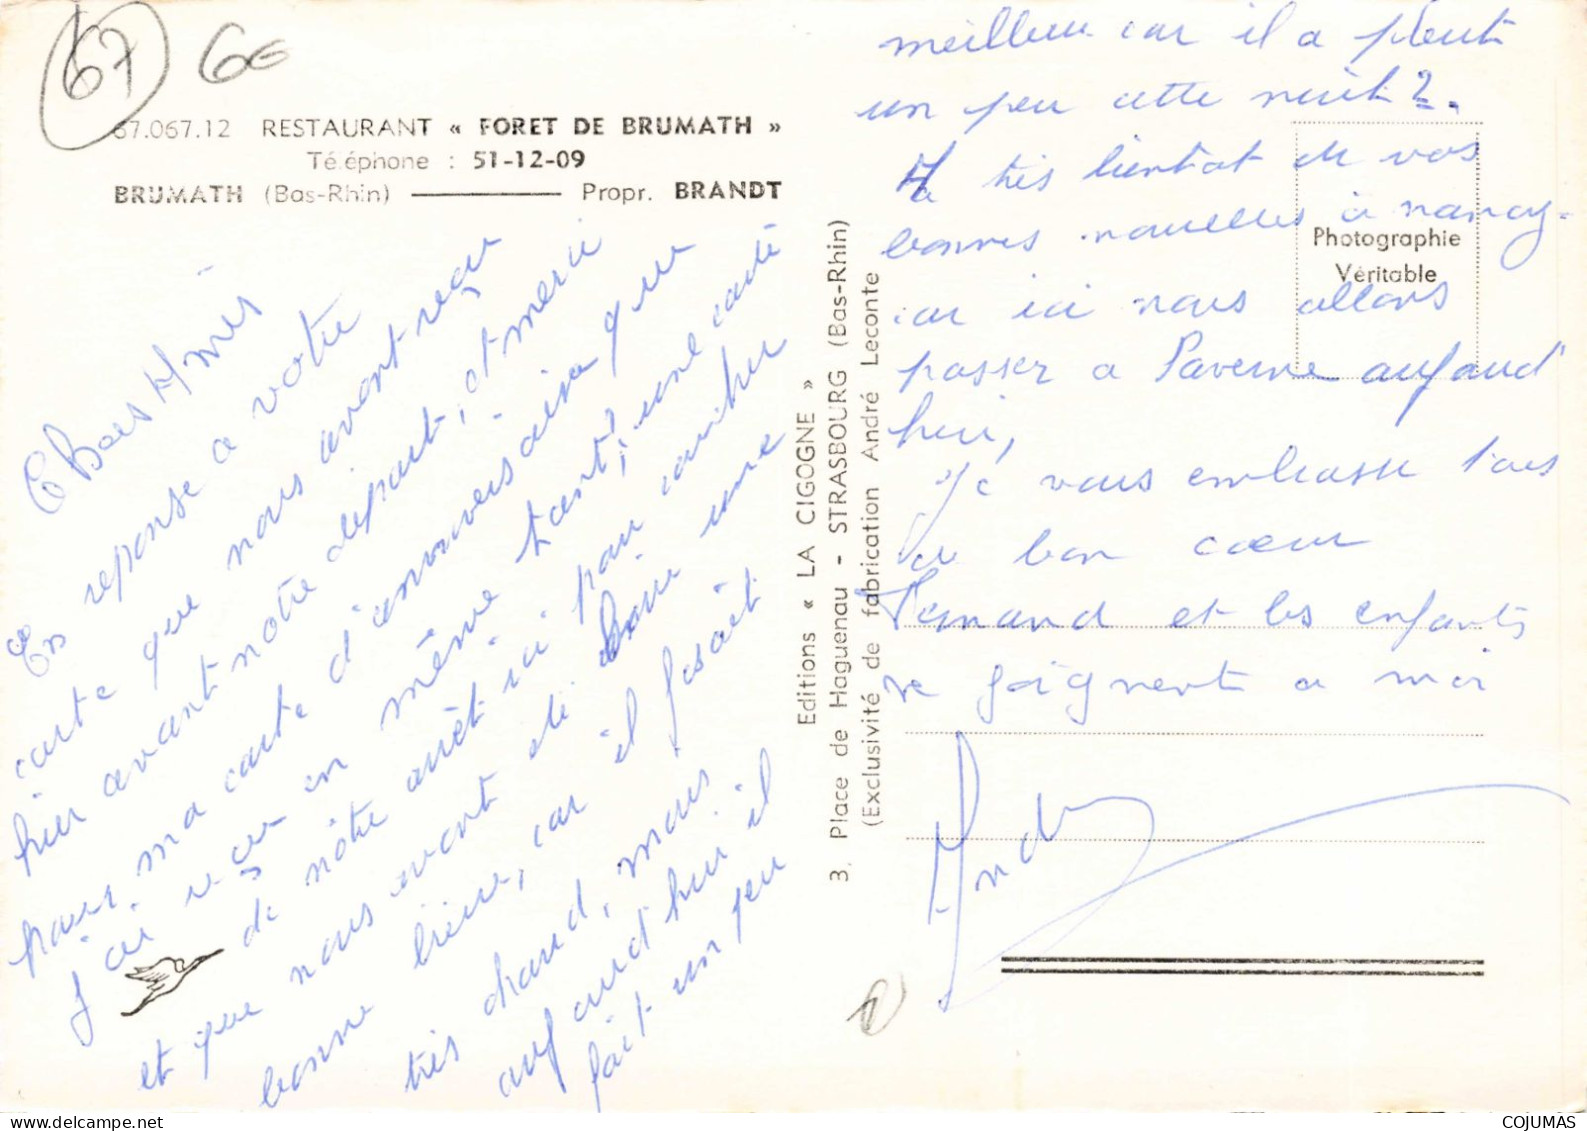 67 6€
67.067.12 RESTAURANT « FORET DE BRUMATH »
Téléphone : 51-12-09
BRUMATH (Bas-Rhin) Propr. BRANDT
Chers Amis
En reponse a votre
carte que nous avont reçu
hier avant notre départ, et merci
pour ma carte d'anniversaire que
j'ai reçu en même tant, une carte
de nôtre arrêt ici pour coucher
et que nous avont été boire une
bonne bière, car il fesait
très chaud, mais
aujourd'hui il
fait un peu
Editions « LA CIGOGNE »
3, Place de Haguenau - STRASBOURG (Bas-Rhin)
(Exclusivité de fabrication André Leconte
meilleur car il a pleut
un peu cette nuit.
A très bientot de vos
bonnes nouvelles à nancy.
car ici nous allons
passer a Saverne aujourd
hui,
Je vous embrasse tous
de bon cœur
Fernand et les enfants
se joignent a moi
Photographie
Véritable
COJUMAS